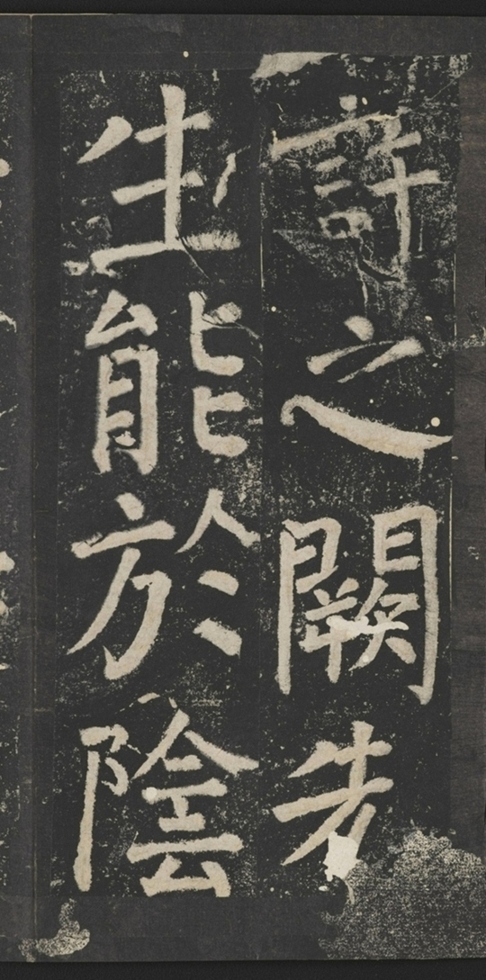 許之闕先
生能於陰